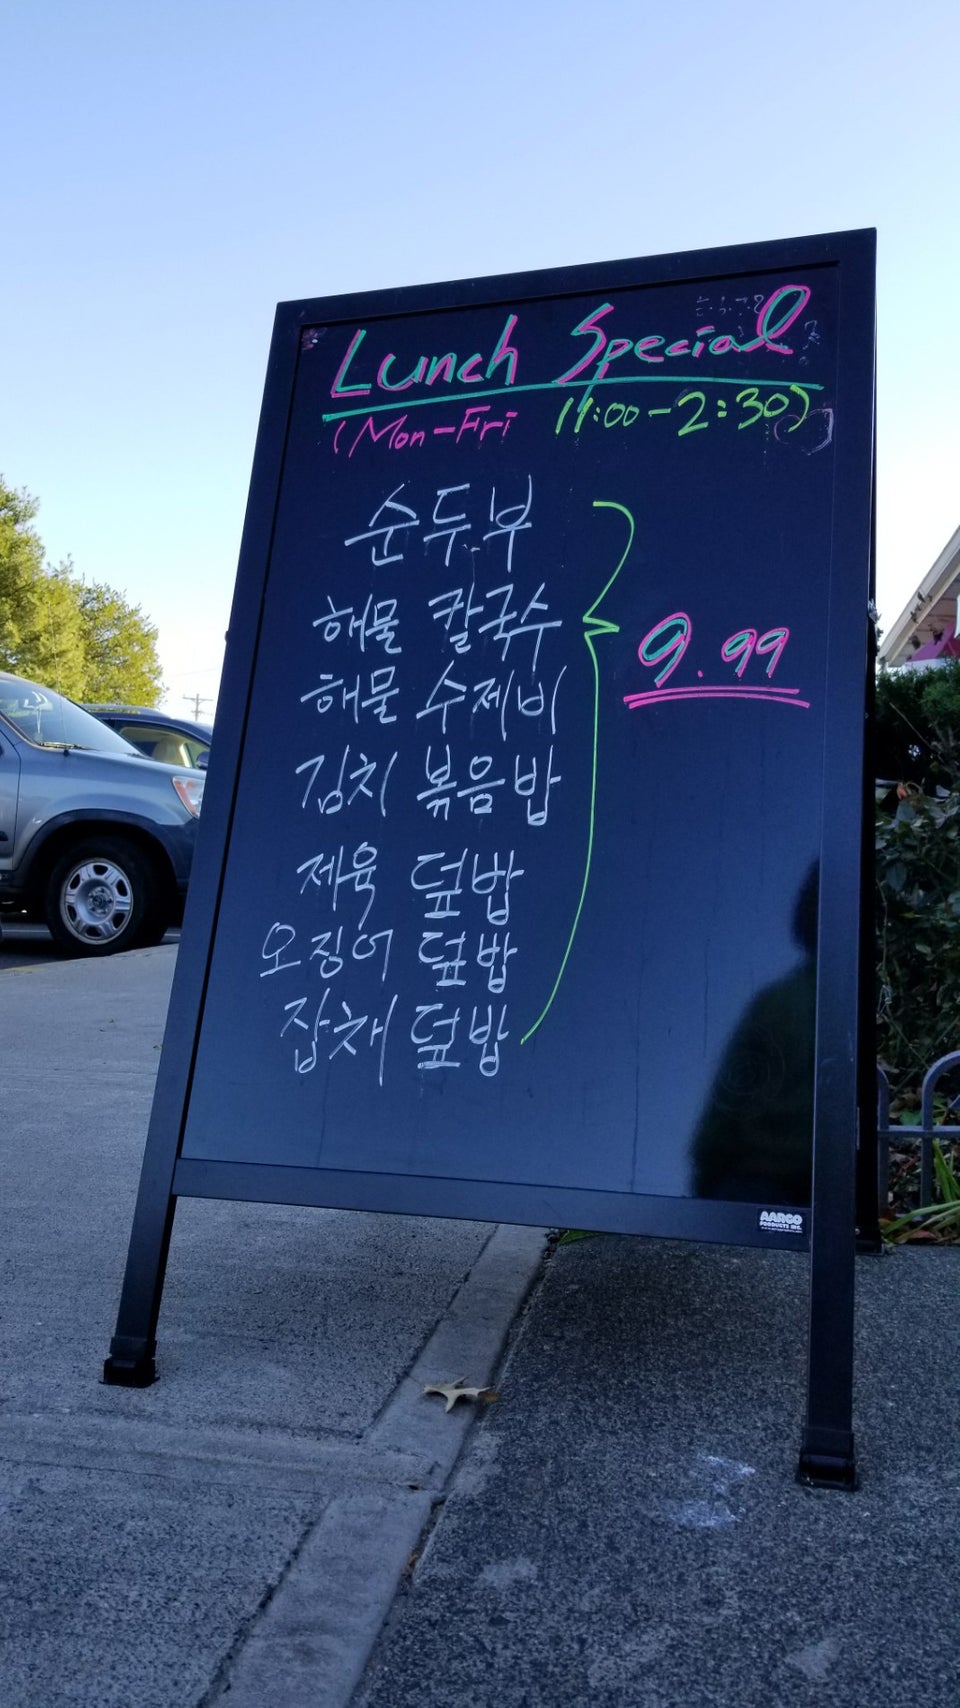 Lunch Special
(Mon-Fri 11:00-2:30)
순두부
해물 칼국수
해물 수제비
9.99
김치 볶음밥
제육 덮밥
오징어 덮밥
잡채 덮밥
AARCO
PRODUCTS INC.